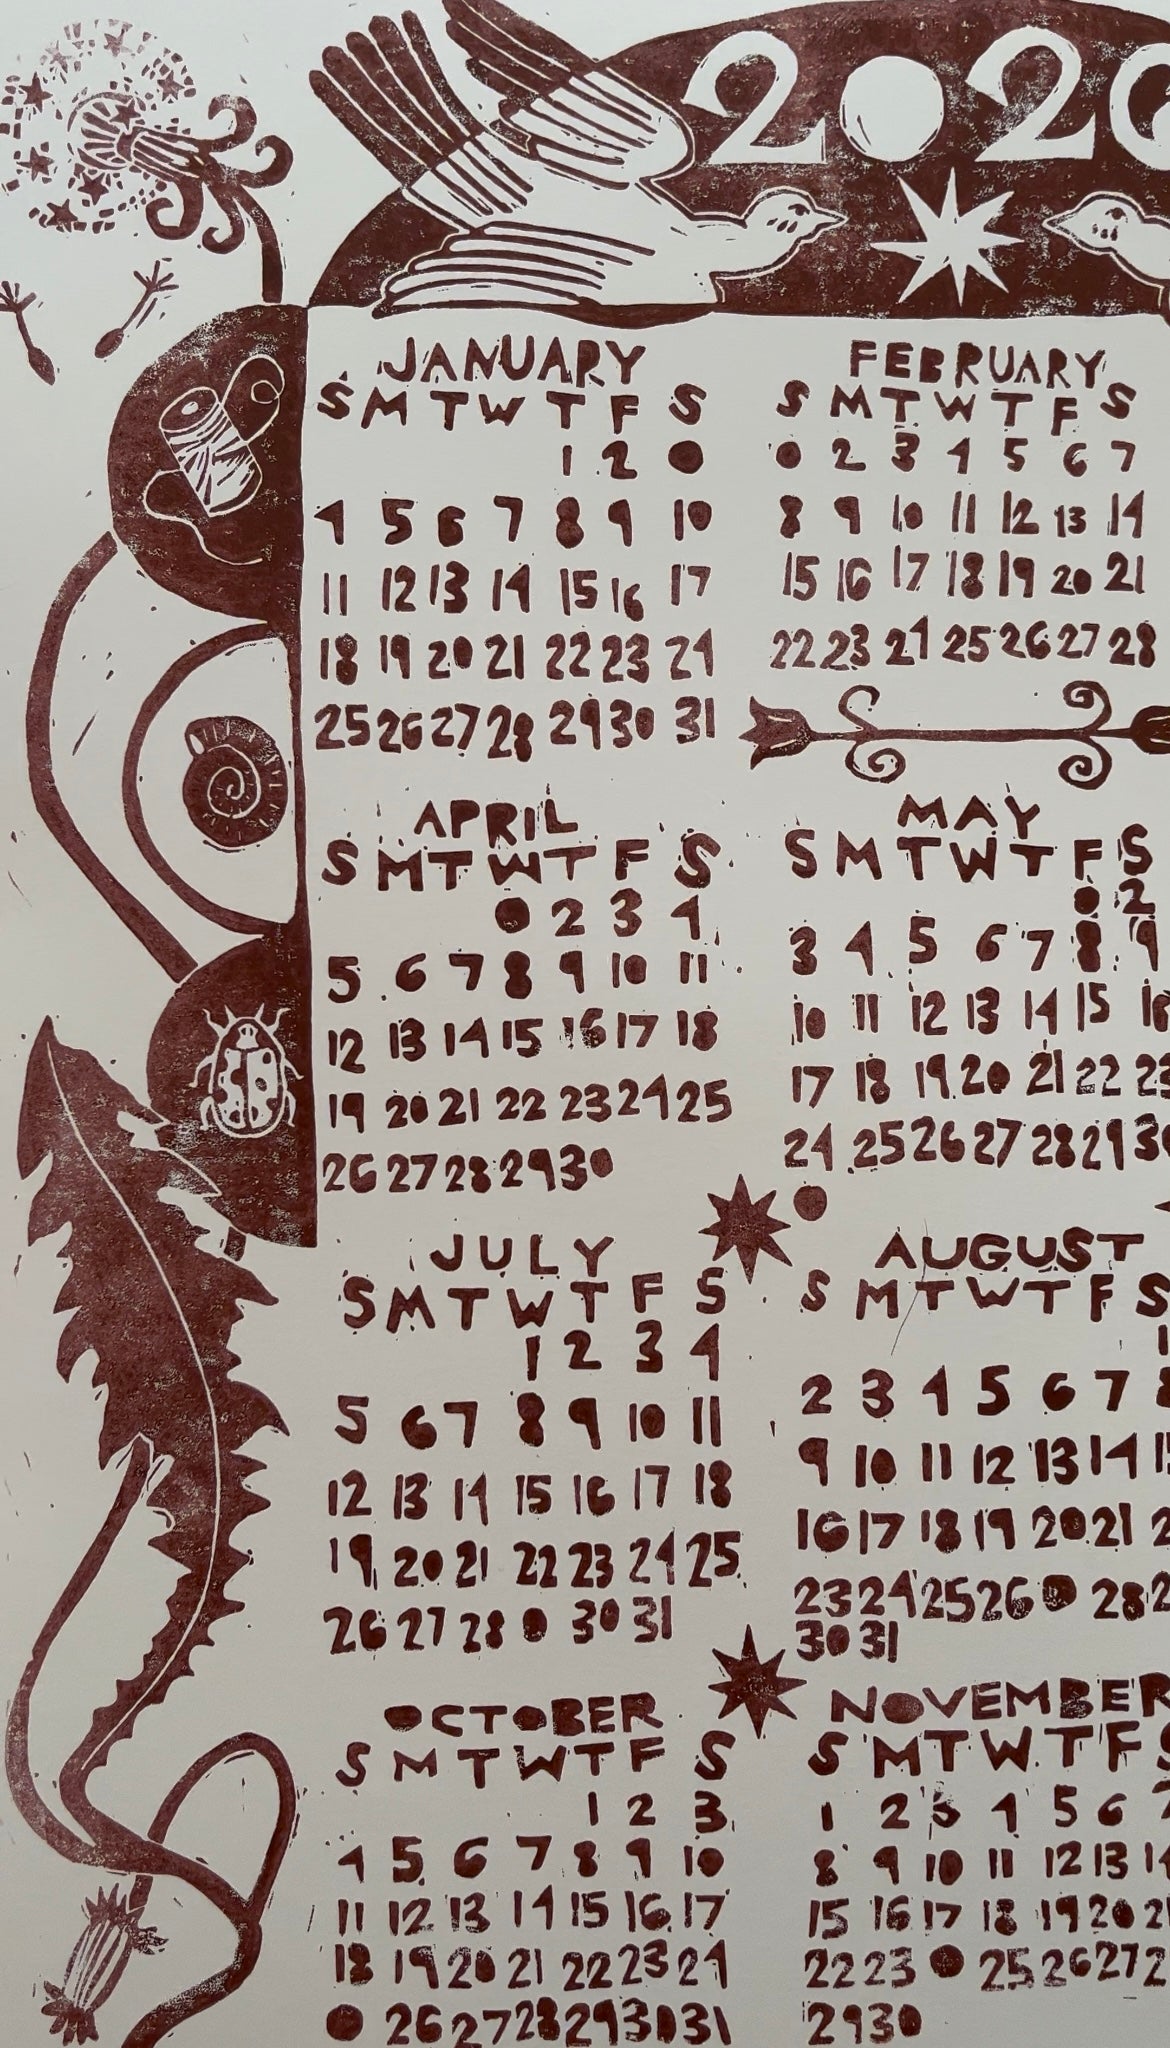 2026
JANUARY
S M T W T F S
1 2 ●
4 5 6 7 8 9 10
11 12 13 14 15 16 17
18 19 20 21 22 23 24
25 26 27 28 29 30 31
FEBRUARY
S M T W T F S
● 2 3 4 5 6 7
8 9 10 11 12 13 14
15 16 17 18 19 20 21
22 23 24 25 26 27 28
APRIL
S M T W T F S
● 2 3 4
5 6 7 8 9 10 11
12 13 14 15 16 17 18
19 20 21 22 23 24 25
26 27 28 29 30
MAY
S M T W T F S
● 2
3 4 5 6 7 8 9
10 11 12 13 14 15 16
17 18 19 20 21 22 23
24 25 26 27 28 29 30
●
JULY
S M T W T F S
1 2 3 4
5 6 7 8 9 10 11
12 13 14 15 16 17 18
19 20 21 22 23 24 25
26 27 28 ● 30 31
AUGUST
S M T W T F S
1
2 3 4 5 6 7 8
9 10 11 12 13 14
16 17 18 19 20 21
23 24 25 26 ● 28
30 31
OCTOBER
S M T W T F S
1 2 3
4 5 6 7 8 9 10
11 12 13 14 15 16 17
18 19 20 21 22 23 24
● 26 27 28 29 30 31
NOVEMBER
S M T W T F S
1 2 3 4 5 6 7
8 9 10 11 12 13 14
15 16 17 18 19 20 21
22 23 ● 25 26 27
29 30